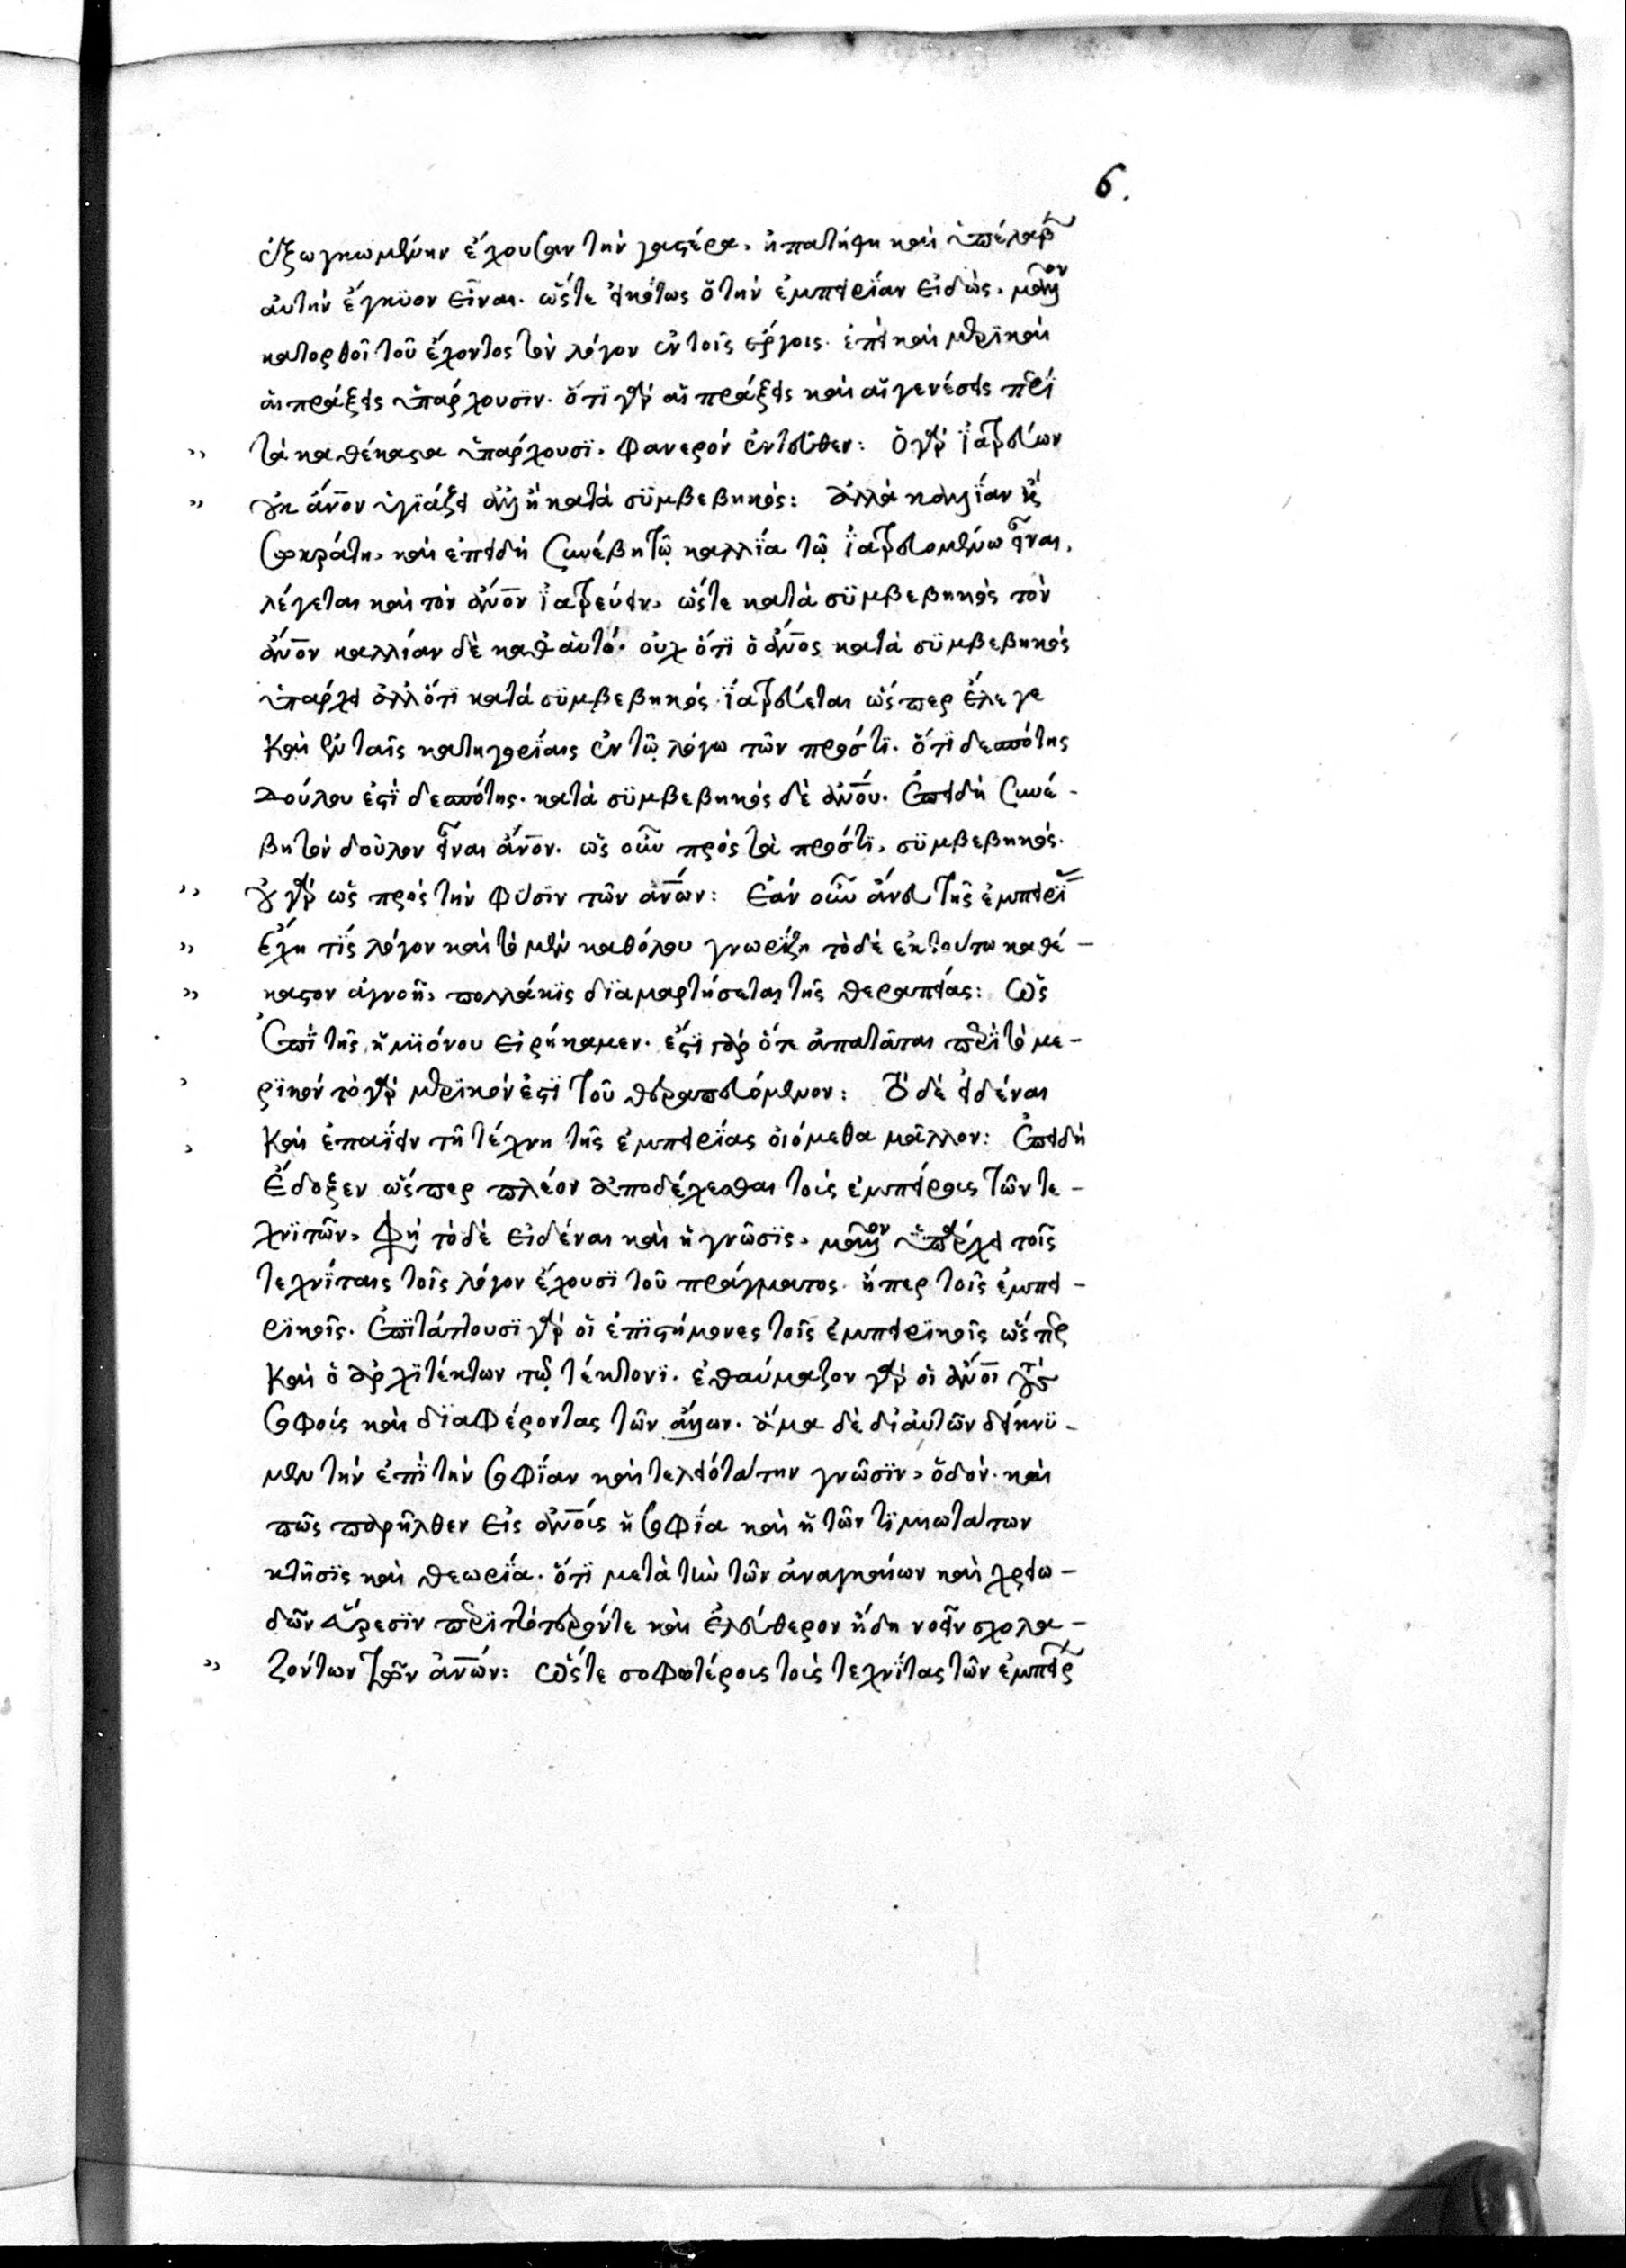 6.
ἐξωγκωμένην ἔχουσαν τὴν γαστέρα, ἠπατήθη καὶ ὑπέλαβ
ἀυτὴν ἔγκϋον εἶναι. ὥστε εἰκότως ὁ τὴν ἐμπειρΐαν εἰδὼς, μᾶλλον
κατορθοῖ τοῦ ἔχοντος τὸν λόγον ἐν τοῖς ἔργοις. ἐπεὶ καὶ μερϊκαὶ
ἁι πράξεις ὑπάρχουσϊν. ὅτϊ γὰρ αἱ πράξεις καὶ αἱ γενέσεις περΐ
,, τὰ καθέκαστα ὑπάρχουσϊ, φανερὸν ἐντεῦθεν: Ὁ γὰρ ϊατρεύων
,, οὐκ ἄνον ὑγιάζει ἀλλ' ἢ κατὰ σϋμβεβηκός: ἀλλὰ καλλΐαν ἢ
σωκράτη, καὶ ἐπειδὴ συνέβη τῷ καλλΐα τῷ ϊατρευομένω εἶναι,
λέγεται καὶ τὸν ἄνον ϊατρεύειν, ὥστε κατὰ σϋμβεβηκὸς τὸν
ἄνον καλλίαν δὲ καθ' ἁυτό. οὐχ ὅτϊ ὁ ἄνος κατὰ σϋμβεβηκὸς
ὑπάρχει ἀλλ' ὅτϊ κατὰ σϋμβεβηκὸς ϊατρεύεται ὥσπερ ἔλεγε
καὶ ἐν ταῖς κατηγορΐαις ἐν τῷ λόγω τῶν πρόστϊ. ὅτϊ δεσπότης
δούλου ἐστὶ δεσπότης. κατὰ σϋμβεβηκὸς δὲ ἄνου. ἐπειδὴ συνέ-
βη τὸν δοῦλον εἶναι ἄνον. ὡς οὖν πρὸς τὰ πρόστϊ, σϋμβεβηκός.
,, οὐ γὰρ ὡς πρὸς τὴν φύσϊν τῶν ἄνων: Ἐὰν οὖν ἄνευ τῆς ἐμπειρΐ
,, ἔχη τϊς λόγον καὶ τὸ μὲν καθόλου γνωρΐζη τὸ δὲ ἐν τούτω καθέ-
,, καστον ἀγνοῆ, πολλάκϊς δϊαμαρτήσεται τῆς θεραπείας: Ὡς
ἐπὶ τῆς ἡμϊόνου εἰρήκαμεν. ἔστϊ γὰρ ὅτε ἀπατᾶται περὶ τὸ με-
, ρϊκὸν τὸ γὰρ μερϊκὸν ἐστὶ τοῦ θεραπευόμενον: Τὸ δὲ εἰδέναι
, καὶ ἐπαΐειν τῆ τέχνη τῆς ἐμπειρΐας ὀιόμεθα μᾶλλον: Ἐπειδὴ
ἔδοξεν ὥσπερ πλέον ἀποδέχεσθαι τοὺς ἐμπείρους τῶν τε-
χνϊτῶν, φησὶ τὸ δὲ εἰδέναι καὶ ἡ γνῶσϊς, μᾶλλον ὑπάρχει τοῖς
τεχνΐταις τοῖς λόγον ἔχουσϊ τοῦ πράγματος. ἤπερ τοῖς ἐμπει-
ρϊκοῖς. ἐπϊτάττουσϊ γὰρ οἱ ἐπϊστήμονες τοῖς ἐμπειρϊκοῖς ὥσπερ
καὶ ὁ ἀρχϊτέκτων τῷ τέκτονϊ. ἐθαύμαζον γὰρ οἱ ἄνοι τοὺς
σοφοὺς καὶ δϊαφέροντας τῶν ἄλλων. ἅμα δὲ δι' ἀυτῶν δείκνϋ-
μεν τὴν ἐπὶ τὴν σοφΐαν καὶ τελειότατην γνῶσϊν, ὁδόν. καὶ
πῶς παρῆλθεν εἰς ἀνους ἡ σοφΐα καὶ ἡ τῶν τϊμιωτάτων
κτῆσϊς καὶ θεωρΐα. ὅτϊ μετὰ τὴν τῶν ἀναγκαίων καὶ χρειω-
δῶν εὕρεσϊν περὶ τὸ πορόντε καὶ ἐλεύθερον ἤδη νοεῖν σχολα-
,, ζόντων τῶν ἀνων: Ὥστε σοφωτέρους τοὺς τεχνΐτας τῶν ἐμπείρ